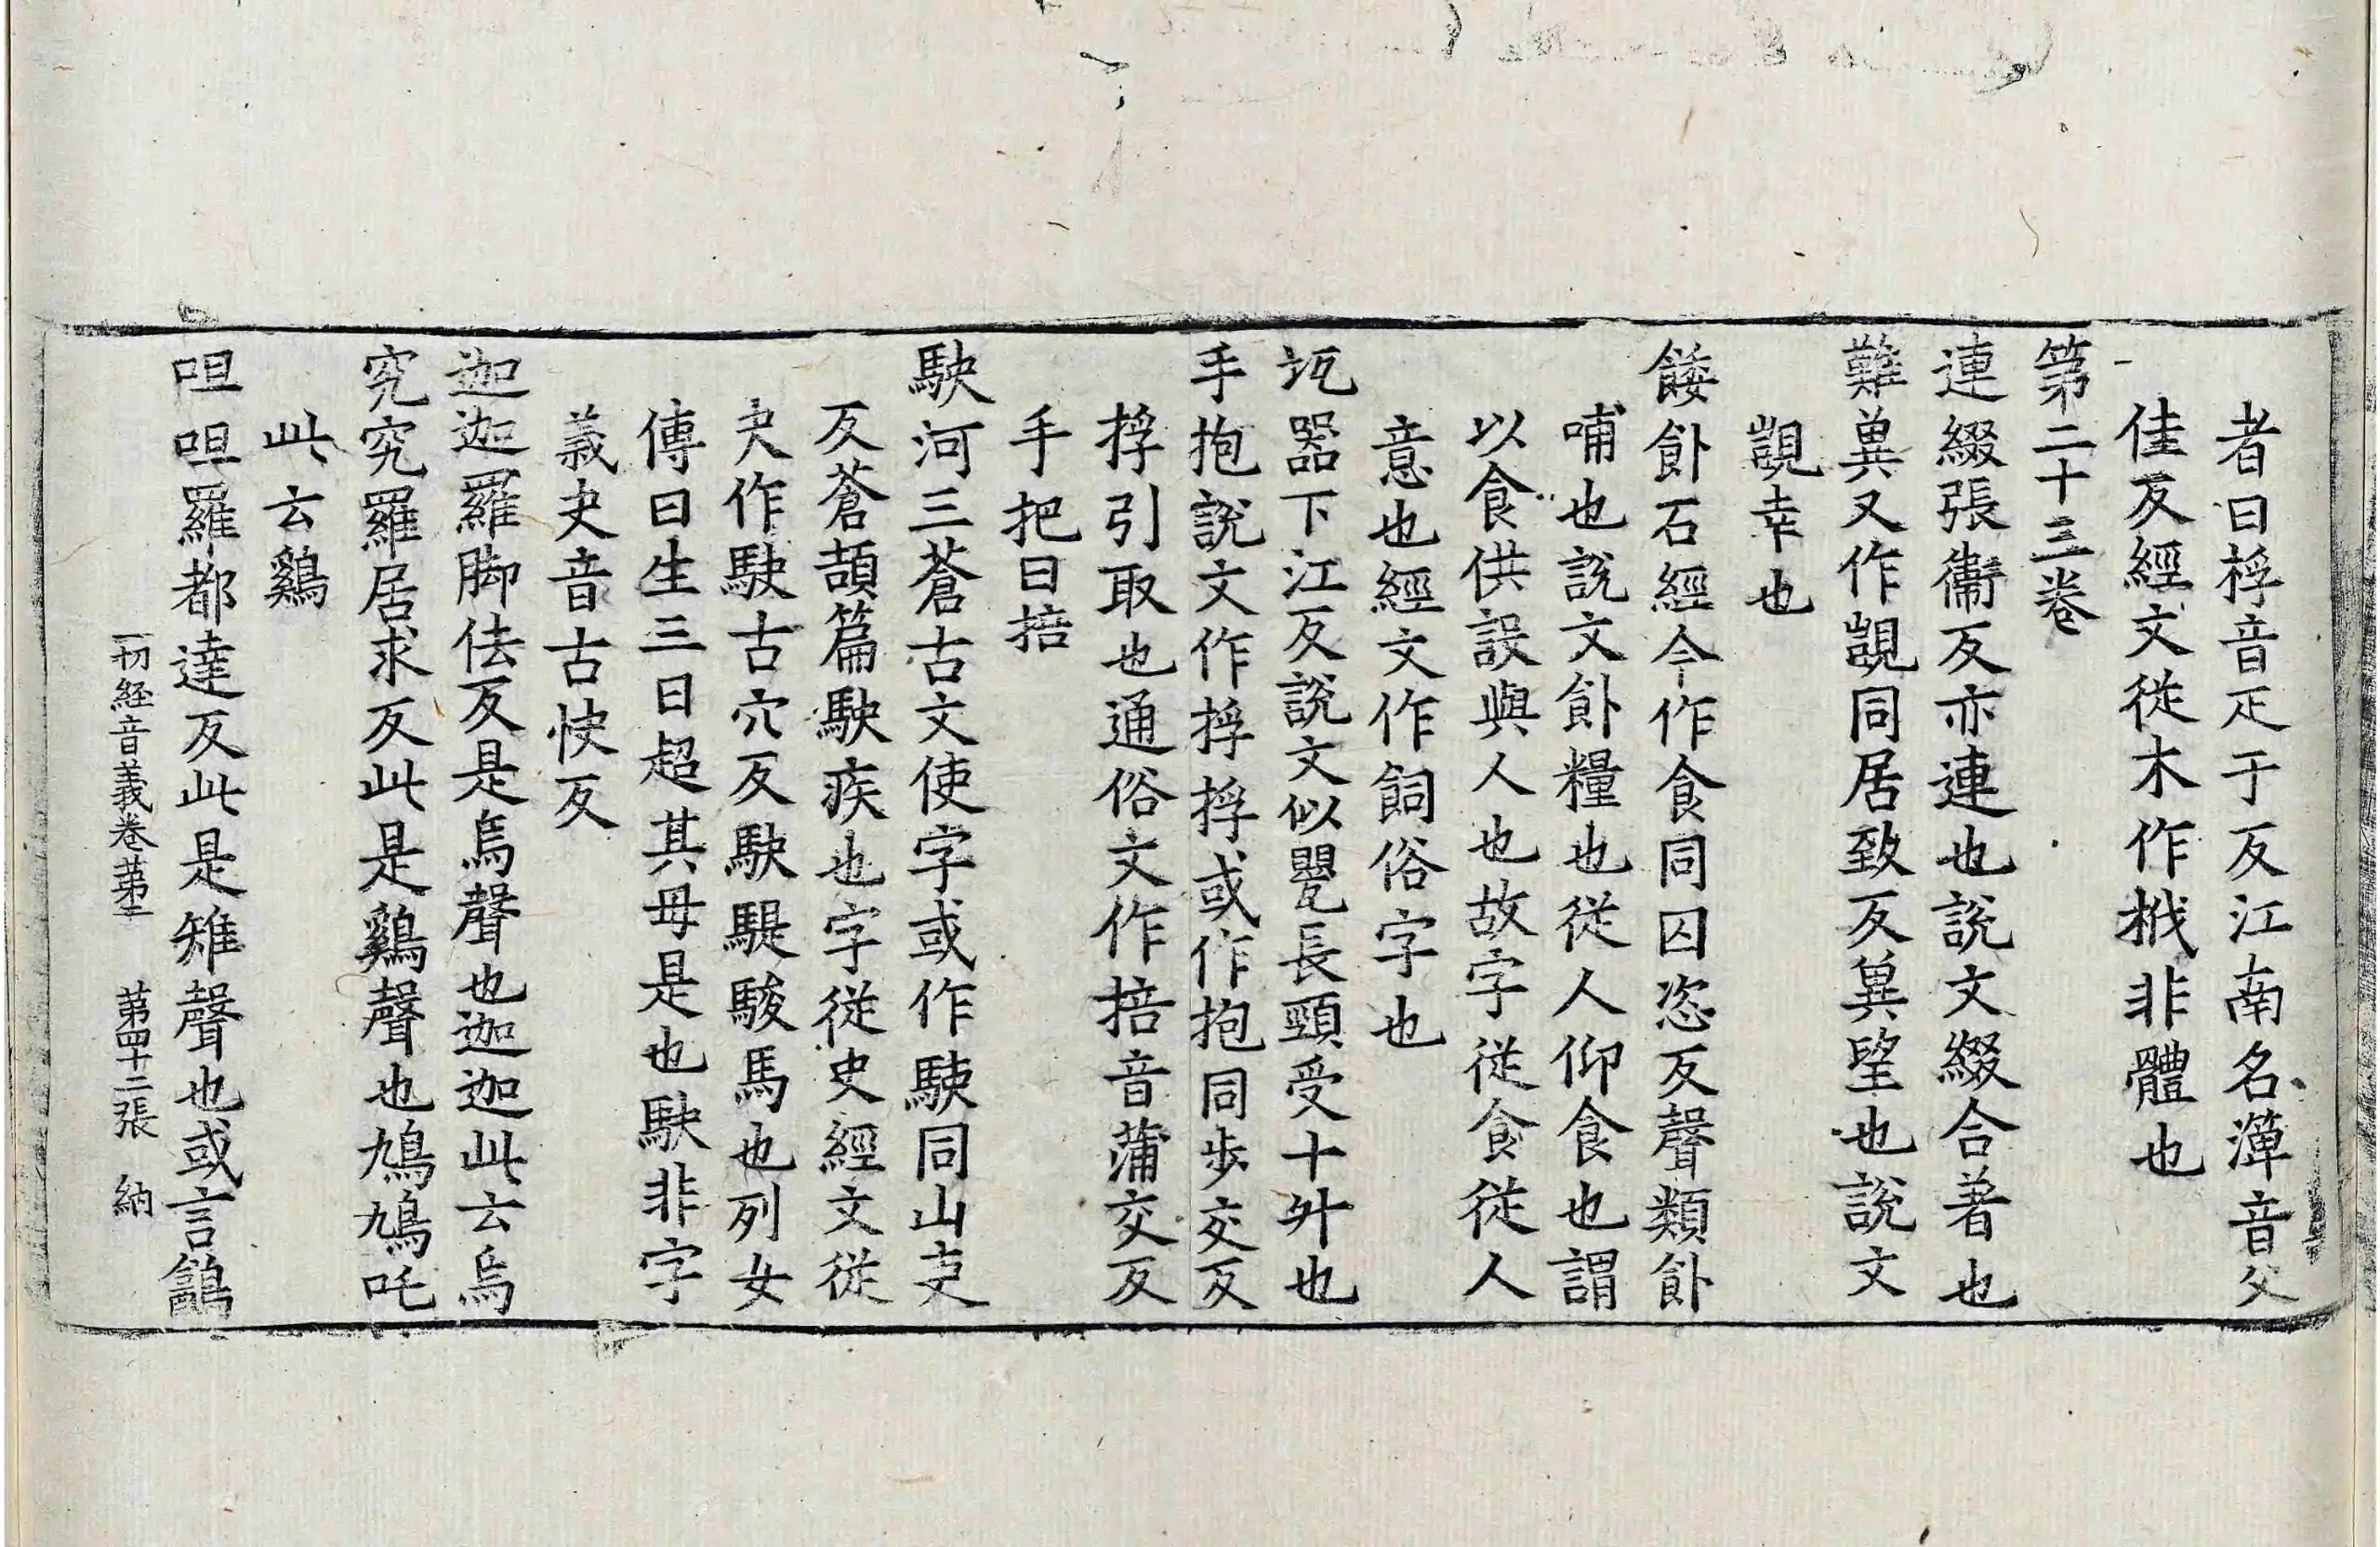 者曰桴音疋于反江南名䉬音父
佳反經文從木作栰非體也
第二十三卷
連綴張衞反亦連也說文綴合著也
難兾又作覬同居致反兾望也說文
覬幸也
餧飤石經今作食同囚恣反聲類飤
哺也說文飤糧也從人仰食也謂
以食供設與人也故字從食從人
意也經文作飼俗字也
瓨器下江反說文似甖長頸受十升也
手抱說文作捊捊或作抱同步交反
捊引取也通俗文作掊音蒲交反
手把曰掊
駛河三蒼古文使字或作駛同山吏
反蒼頡篇駛疾也字從史經文從
夬作駃古穴反駃騠駿馬也列女
傳曰生三日超其母是也駃非字
義夬音古快反
迦迦羅脚佉反是烏聲也迦迦此云烏
究究羅居求反此是鷄聲也鳩鳩吒
此云鷄
呾呾羅都達反此是雉聲也或言鷂
一切經音義卷苐二 苐四十二張 納